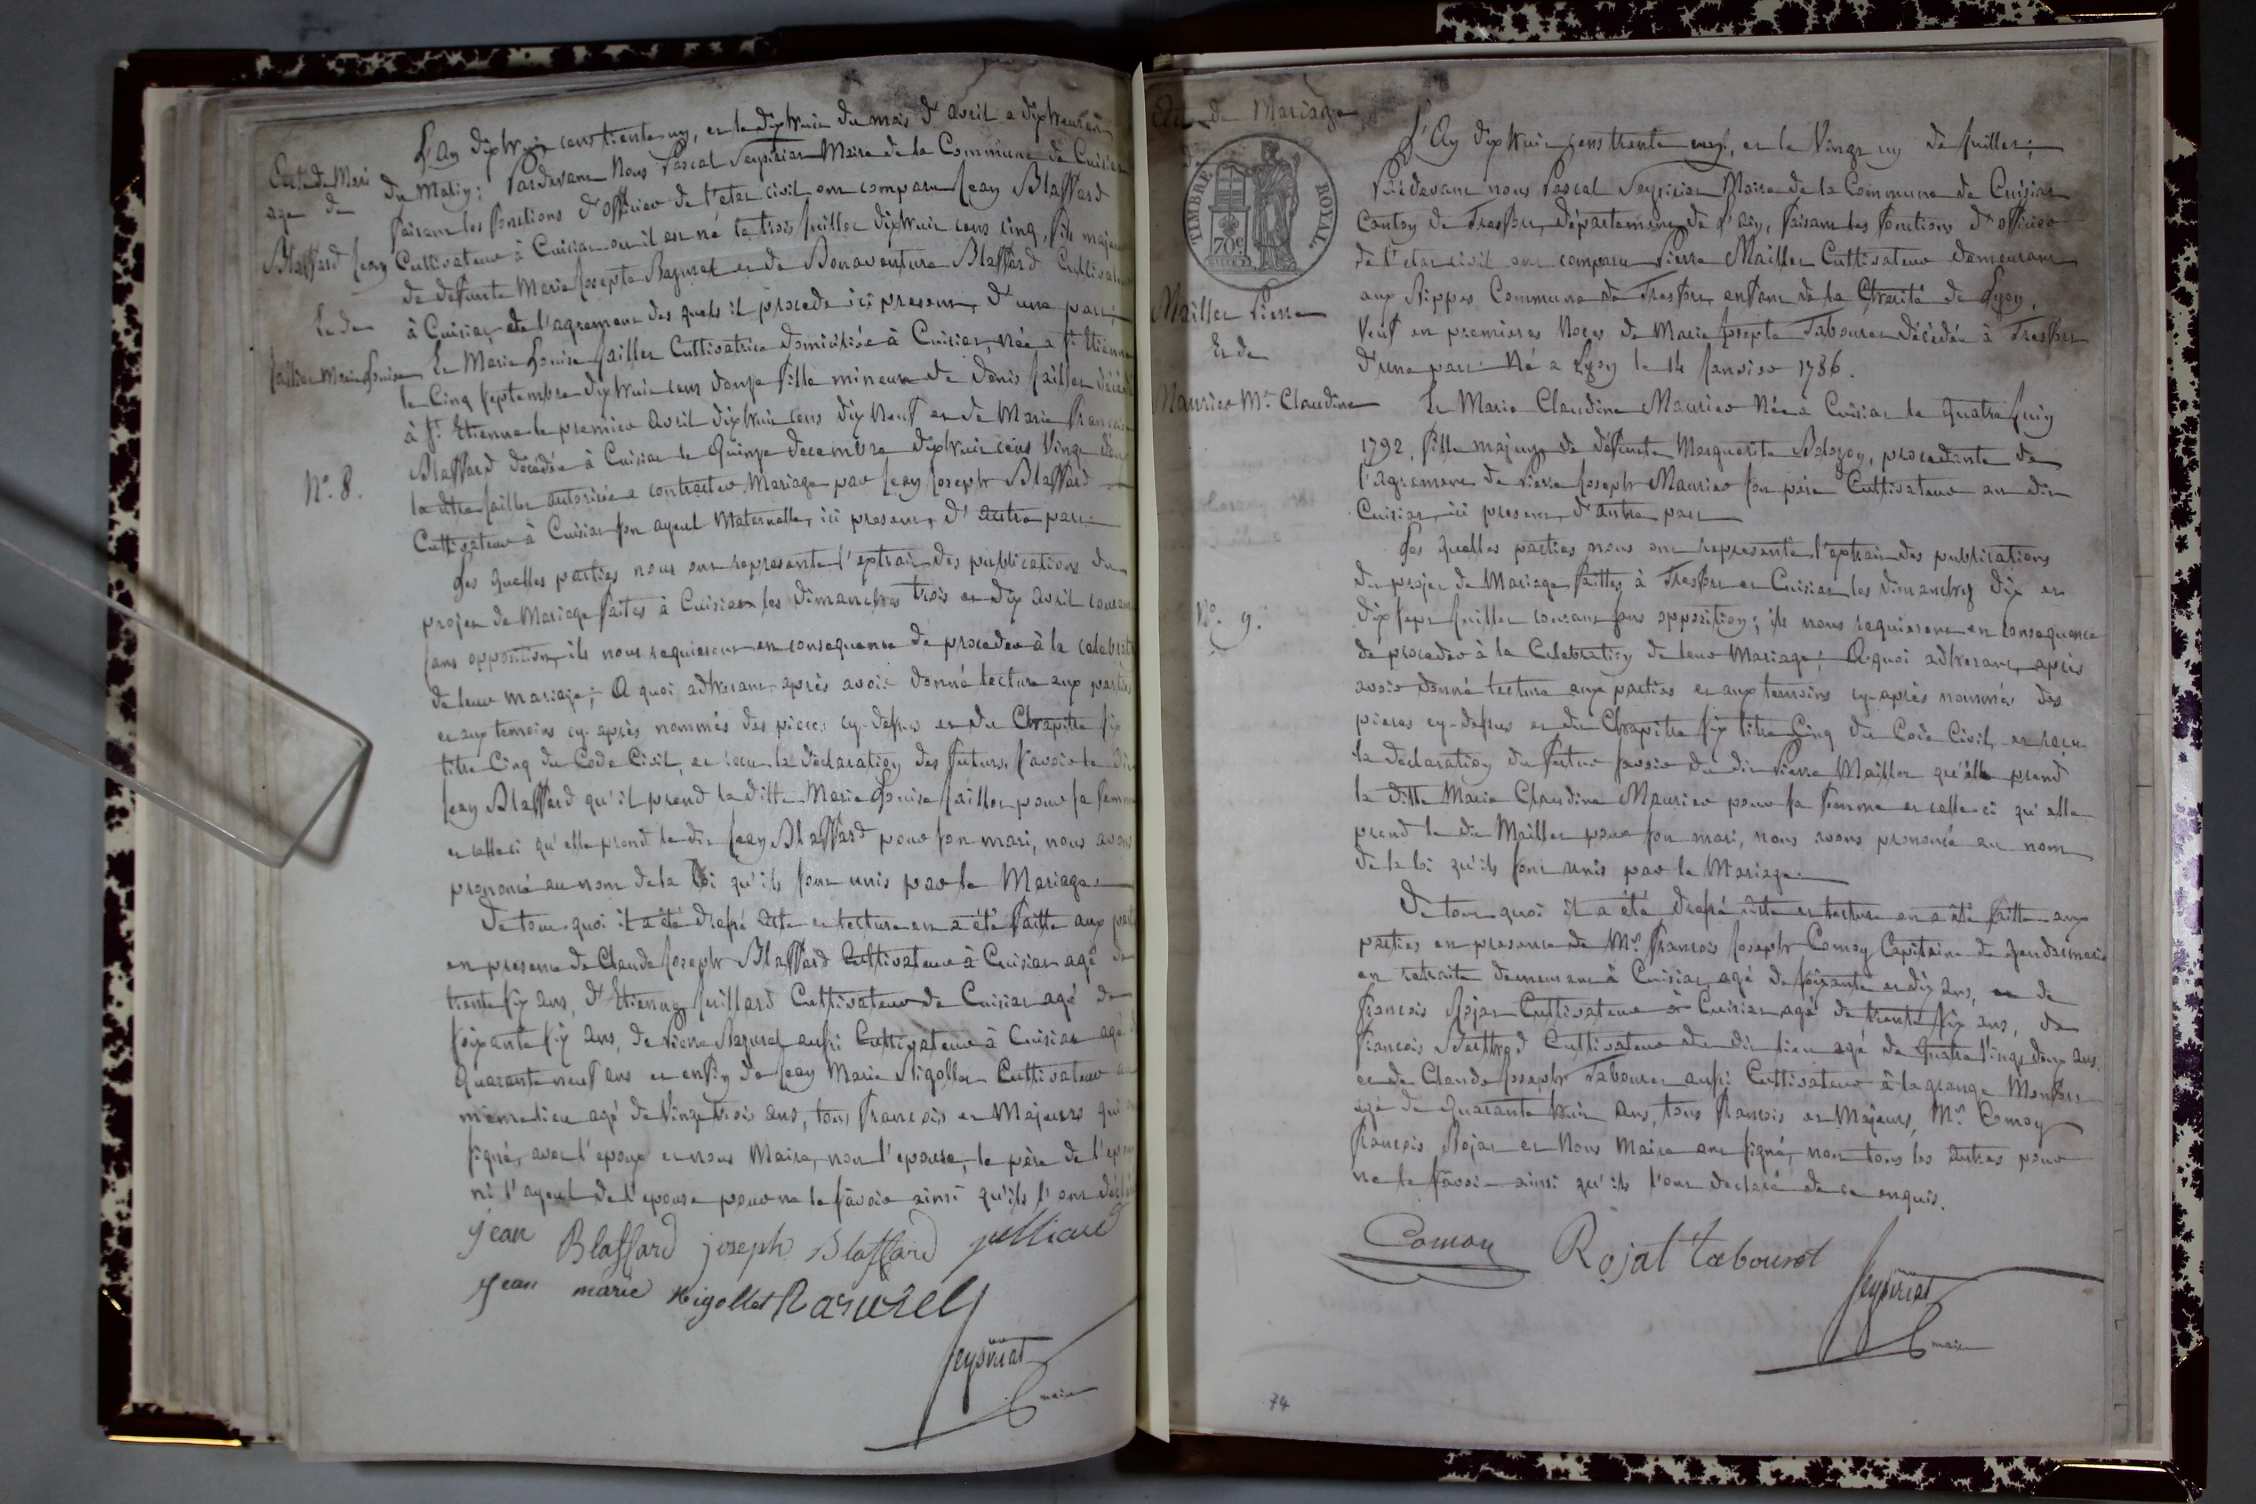 Acte de Mari
age de
Blaffard Jean
Et de
Jaillet Marie Louise
N.° 8.
L'an dixhuit cens trente un, et le dixhuit du mois d'avril a dix heures
du Matin; Pardevant Nous Pascal Seysiriat Maire de la Commune de Cuisiat
faisant les fonctions d'officier de l'etat civil ont comparu Jean Blaffard
Cultivateur à Cuisiat ou il est né le trois juillet dixhuit cens cinq, fils majeur
de defunte Marie Josepte Razurel et de Bonaventure Blaffard Cultivateur
à Cuisiat de l'agrement des quels il procede ici present, d'une part;
Et Marie Louise Jaillet Cultivatrice domiciliée à Cuisiat, née a St. Etienne
le Cinq Septembre dixhuit cens douze fille mineure de Denis Jaillet décédé
à St. Etienne le premier avril dixhuit cens dix Neuf et de Marie Francoise
Blaffard décédée à Cuisiat le Quinze decembre dixhuit cens Vingt
la ditte Jaillet autorisée a contracter Mariage par Jean Joseph Blaffard
Cultivateur à Cuisiat son ayeul Maternelle, ici present, d'autre part:
Les quelles parties nous ont representé l'extrait des publications du
projet de Mariage faites à Cuisiat les dimanches trois et dix avril courant
sans opposition, ils nous requierent en consequence de proceder à la celebration
de leur mariage; A quoi adherant, après avoir donné lecture aux parties
et aux temoins cy-après nommés des pieces cy-dessus et du Chapitre six
titre Cinq du Code Civil, et recu la déclaration des futurs, savoir le dit
Jean Blaffard qu'il prend la ditte Marie Louise Jaillet pour sa femme
et celle ci qu'elle prend le dit Jean Blaffard pour son mari, nous avons
prononcé au nom de la loi qu'ils sont unis par le Mariage.
De tout quoi il a été dressé acte et lecture en a été faitte aux
en presence de Claude Joseph Blaffard Cultivateur à Cuisiat agé de
trente six ans, d'Etienne Juillard Cultivateur de Cuisiat agé de
soixante six ans, de Pierre Razurel aussi Cultivateur à Cuisiat agé
Quarante neuf ans et enfin de Jean Marie Rigollet Cultivateur au
même lieu agé de Vingt trois ans, tous francois et Majeurs qui
signé, avec l'epoux et nous Maire, non l'epouse, le père de l'epoux
ni l'ayeul de l'epouse pour ne le savoir ainsi qu'ils l'ont déclaré
jean Blaffard joseph Blaffard juilliard
jean marie Rigollet Razurel
Seysiriat
maire
Acte de Mariage
de
TIMBRE ROYAL.
70c
Maillet Pierre
Et de
Maurier Mie. Claudine
N.° 9.
L'An dixhuit cens trente un, et le Vingt un de juillet;
Pardevant nous Pascal Seysiriat Maire de la Commune de Cuisiat
Canton de Treffort, département de l'ain, faisant les fonctions d'officier
de l'etat civil ont comparu Pierre Maillet Cultivateur demeurant
aux Rippes Commune de Treffort, enfant de la Charité de Lyon,
Veuf en premieres Noces de Marie Josepte Tabouret décédée à Treffort
d'une part. Né a Lyon le 14 Janvier 1786.
Et Marie Claudine Maurier Née a Cuisiat le quatre Juin
1792, fille majeure de défunte Marguerite, procedante de
l'agrement de Pierre Joseph Maurier son père Cultivateur au dit
Cuisiat, ici present, d'autre part
Les quelles parties nous ont representé l'extrait des publications
du projet de Mariage faittes à Treffort et Cuisiat les dimanches dix et
dix sept juillet courant sans opposition; ils nous requierent en consequence
de proceder à la Celebration de leur Mariage; A quoi adherant, après
avoir donné lecture aux parties et aux temoins cy-après nommés des
pieces cy-dessus et du Chapitre six titre Cinq du Code Civil, et recu
la declaration du futur savoir du dit Pierre Maillet qu'ille prend
la ditte Marie Claudine Maurier pour sa femme et celle-ci qu'elle
prend le dit Maillet pour son mari, nous avons prononcé au nom
de la loi qu'ils sont unis par le Mariage.
De tout quoi il a été dressé acte et lecture en a été faitte aux
parties en presence de Mr. Francois Joseph Comoy Capitaine de gendarmerie
en retraite demeurant à Cuisiat, agé de soixante et dix ans, de
francois Rojat Cultivateur à Cuisiat agé de trente six ans, de
francois Cultivateur du dit lieu agé de quatre Vingt deux ans
et de Claude Joseph Tabouret aussi Cultivateur à la grange
agé de Quarante huit ans, tous francois et Majeurs, Mr. Comoy
francois Rojat et Nous Maire ont signé, non tous les autres pour
ne le savoir ainsi qu'ils l'ont declaré de ce enquis.
Comoy Rojat tabouret
Seysiriat
maire
74